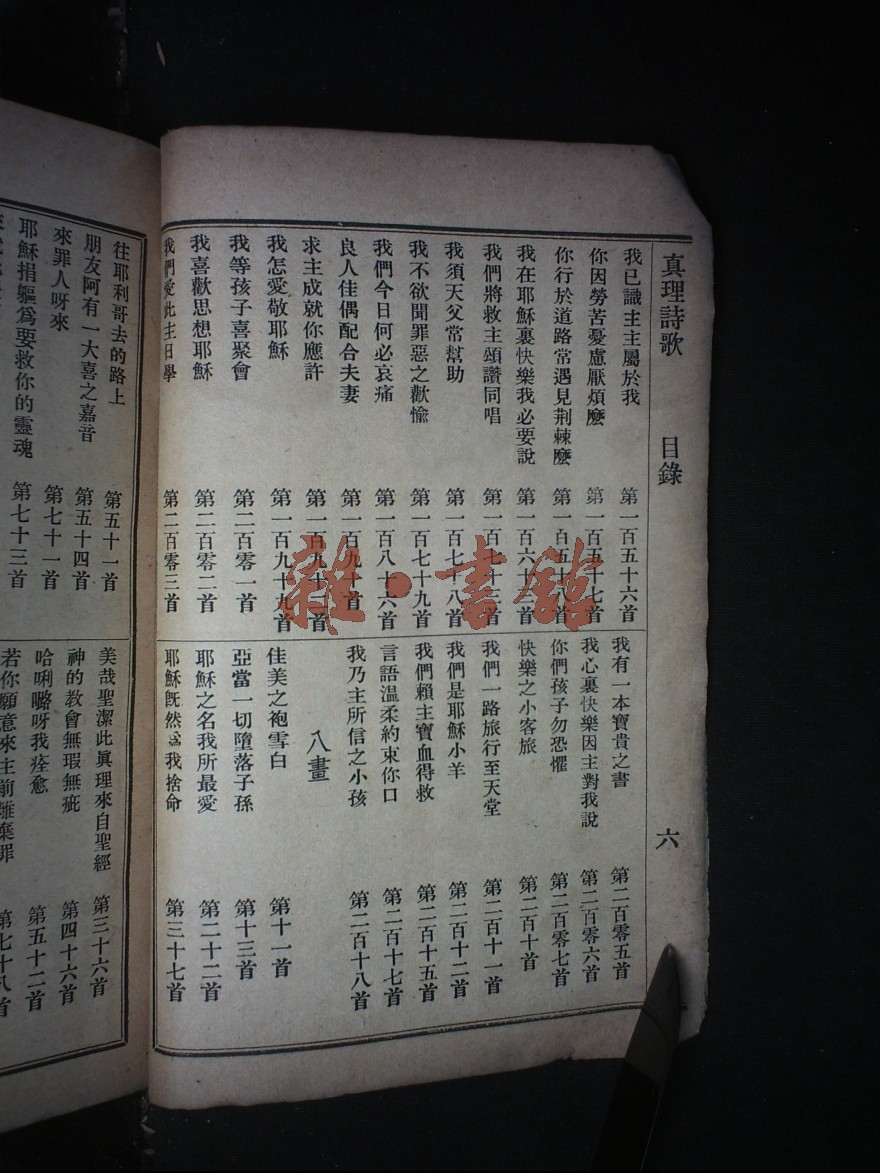 真理詩歌 目錄 六
我已識主主屬於我 第一百五十六首
你因勞苦憂慮厭煩麼 第一百五十七首
你行於道路常遇見荆棘麽
我在耶穌裏快樂我必要說
我們將救主頌讚同唱
我須天父常幫助 第一百七十八首
我不欲聞罪惡之歡愉 第一百七十九首
我們今日何必哀痛 第一百八十六首
良人佳偶配合夫妻 第一百九十首
求主成就你應許
我怎愛敬耶穌 第一百九十九首
我等孩子喜聚會 第二百零一首
我喜歡思想耶穌 第二百零二首
我們愛此主日學 第二百零三首
我有一本寶貴之書 第二百零五首
我心裏快樂因主對我說 第二百零六首
你們孩子勿恐懼 第二百零七首
快樂之小客旅 第二百十首
我們一路旅行至天堂 第二百十一首
我們是耶穌小羊 第二百十二首
我們賴主寶血得救 第二百十五首
言語温柔約束你口 第二百十七首
我乃主所信之小孩 第二百十八首
八畫
佳美之袍雪白 第十一首
亞當一切墮落子孫 第十三首
耶穌之名我所最愛 第二十二首
耶穌旣然爲我捨命 第三十七首
往耶利哥去的路上 第五十一首
朋友阿有一大喜之嘉音 第五十四首
來罪人呀來 第七十一首
耶穌捐軀爲要救你的靈魂 第七十三首
美哉聖潔此眞理來自聖經 第三十六首
神的教會無瑕無疵 第四十六首
哈唎嚕呀我痊愈 第五十二首
若你願意來主前離棄罪 第七十八首
雜·書館